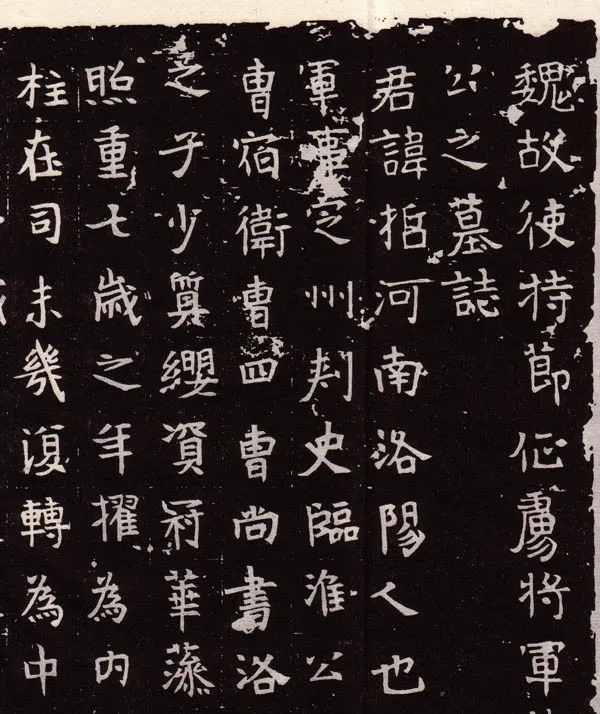 魏故使持節征虜將軍
公之墓誌
君諱哲河南洛陽人也
軍事定州刺史臨淮公
曹宿衛曹四曹尚書洛
之子少算纓資冠華藻
照重七歲之年擢為內
柱在司未幾復轉為中